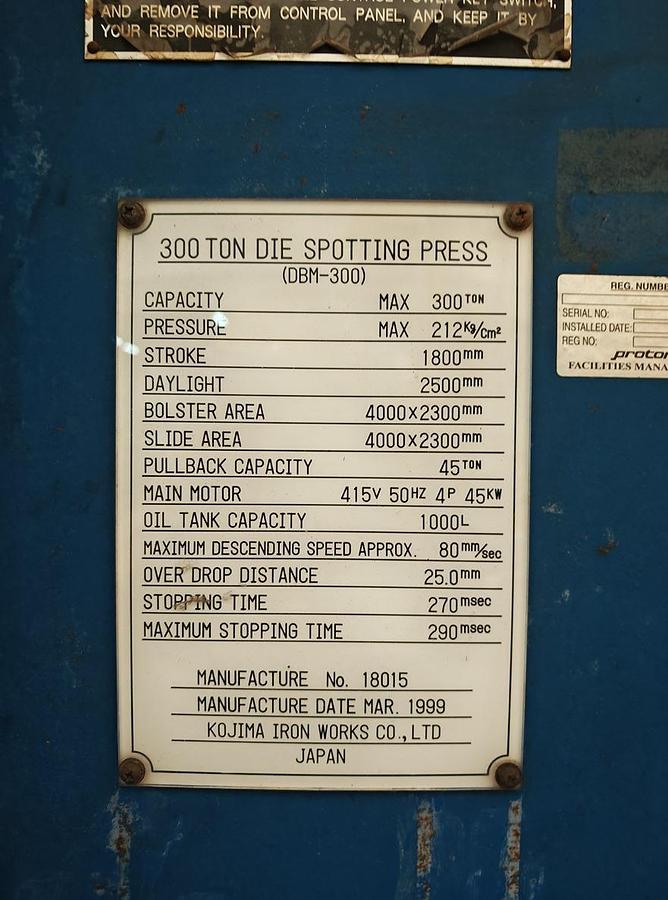 CONTROL POWER KEY SWITCH,
AND REMOVE IT FROM CONTROL PANEL, AND KEEP IT BY
YOUR RESPONSIBILITY.
300 TON DIE SPOTTING PRESS
(DBM-300)
CAPACITY MAX 300 TON
PRESSURE MAX 212 Kg/Cm²
STROKE 1800mm
DAYLIGHT 2500mm
BOLSTER AREA 4000×2300mm
SLIDE AREA 4000×2300mm
PULLBACK CAPACITY 45 TON
MAIN MOTOR 415V 50HZ 4P 45KW
OIL TANK CAPACITY 1000L
MAXIMUM DESCENDING SPEED APPROX. 80mm/sec
OVER DROP DISTANCE 25.0mm
STOPPING TIME 270msec
MAXIMUM STOPPING TIME 290msec
MANUFACTURE No. 18015
MANUFACTURE DATE MAR. 1999
KOJIMA IRON WORKS CO., LTD
JAPAN
REG. NUMBE
SERIAL NO:
INSTALLED DATE:
REG NO:
proto
FACILITIES MANA